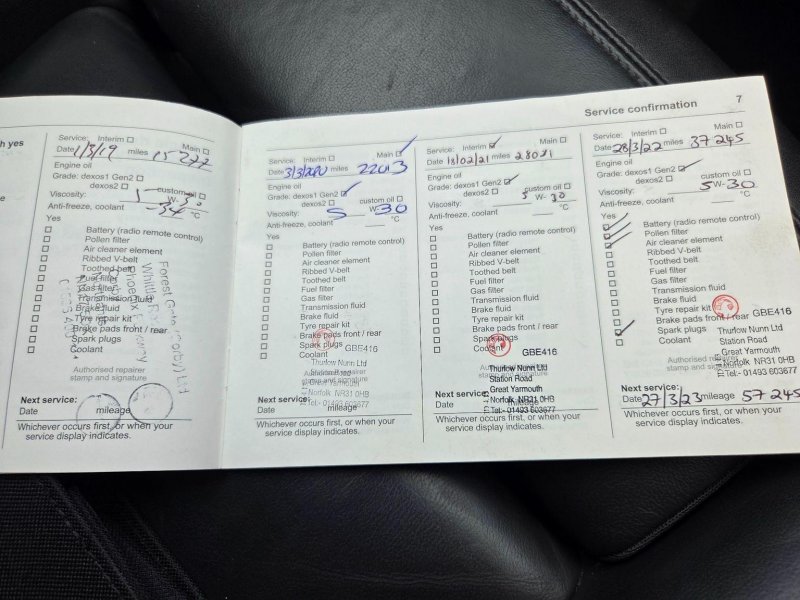 h yes
Service confirmation 7
Service: Interim Main
Date 1/3/19 miles
Engine oil
Grade: dexos1 Gen2
dexos2 custom oil
Viscosity: 5 W- 30
Anti-freeze, coolant -34 °C
Yes
Battery (radio remote control)
Pollen filter
Air cleaner element
Ribbed V-belt
Toothed belt
Fuel filter
Gas filter
Transmission fluid
Brake fluid
Tyre repair kit
Brake pads front / rear
Spark plugs
Coolant
Forest Gate (Corby) Ltd
Phoenix Parkway
Authorised repairer
stamp and signature
Next service:
Date mileage
Whichever occurs first, or when your
service display indicates.
Service: Interim Main
Date 3/3/2020 miles 22013
Engine oil
Grade: dexos1 Gen2
dexos2 custom oil
Viscosity: 5 W- 30
Anti-freeze, coolant °C
Yes
Battery (radio remote control)
Pollen filter
Air cleaner element
Ribbed V-belt
Toothed belt
Fuel filter
Gas filter
Transmission fluid
Brake fluid
Tyre repair kit
Brake pads front / rear
Spark plugs GBE416
Coolant
Thurlow Nunn Ltd
Authorised repairer
Station Road
stamp and signature
Great Yarmouth
Norfolk NR31 0HB
Tel:- 01493 603677
Next service:
Date mileage
Whichever occurs first, or when your
service display indicates.
Service: Interim Main
Date 13/02/21 miles 28021
Engine oil
Grade: dexos1 Gen2
dexos2 custom oil
Viscosity: 5 W- 30
Anti-freeze, coolant °C
Yes
Battery (radio remote control)
Pollen filter
Air cleaner element
Ribbed V-belt
Toothed belt
Fuel filter
Gas filter
Transmission fluid
Brake fluid
Tyre repair kit
Brake pads front / rear
Spark plugs
Coolant GBE416
Authorised repairer
stamp and signature
Thurlow Nunn Ltd
Station Road
Great Yarmouth
Norfolk NR31 0HB
Tel:- 01493 603677
Next service:
Date mileage
Whichever occurs first, or when your
service display indicates.
Service: Interim Main
Date 28/3/22 miles 37245
Engine oil
Grade: dexos1 Gen2
dexos2 custom oil
Viscosity: 5 W- 30
Anti-freeze, coolant °C
Yes
Battery (radio remote control)
Pollen filter
Air cleaner element
Ribbed V-belt
Toothed belt
Fuel filter
Gas filter
Transmission fluid
Brake fluid
Tyre repair kit
Brake pads front / rear GBE416
Spark plugs
Coolant
Thurlow Nunn Ltd
Station Road
Great Yarmouth
Norfolk NR31 0HB
Tel:- 01493 603677
Authorised repairer
stamp and signature
Next service:
Date 27/3/23 mileage 57245
Whichever occurs first, or when your
service display indicates.